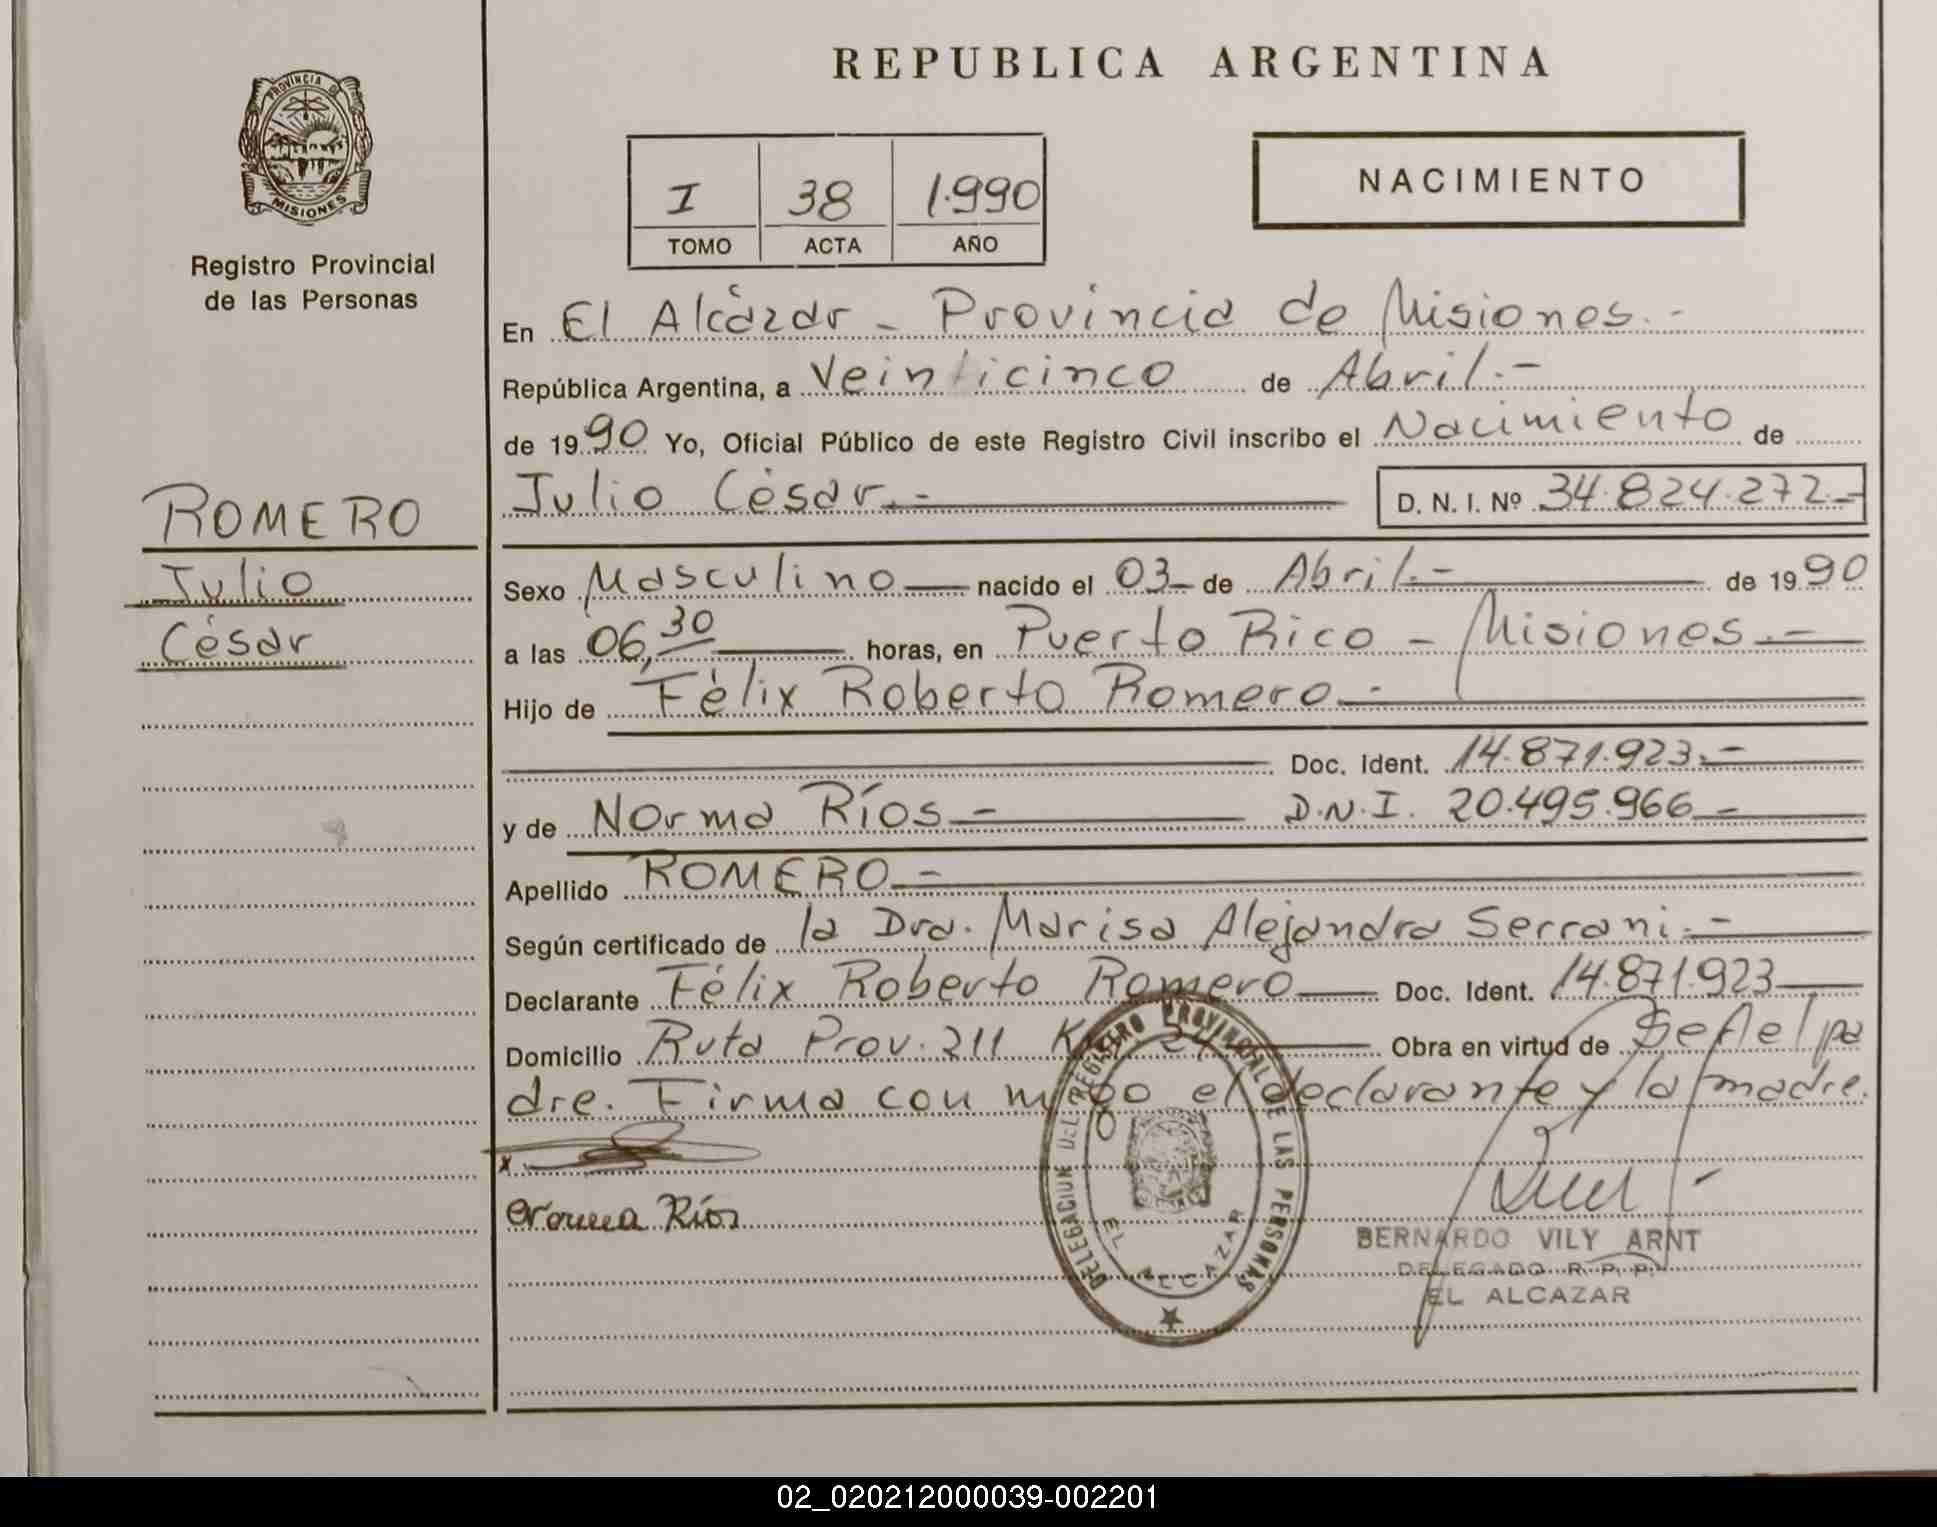 REPUBLICA ARGENTINA
PROVINCIA DE
MISIONES
Registro Provincial
de las Personas
I 38 1.990
TOMO ACTA AÑO
NACIMIENTO
ROMERO
Julio
César
En El Alcázar - Provincia de Misiones.-
República Argentina, a Veinticinco de Abril.-
de 1990 Yo, Oficial Público de este Registro Civil inscribo el Nacimiento de
Julio César.- D. N. I. Nº 34.824.272.-
Sexo Masculino nacido el 03 de Abril.- de 1990
a las 06,30 horas, en Puerto Rico - Misiones.-
Hijo de Félix Roberto Romero.-
Doc. Ident. 14.871.923.-
y de Norma Ríos.- D.N.I. 20.495.966.-
Apellido ROMERO.-
Según certificado de la Dra. Marisa Alejandra Serrani.-
Declarante Félix Roberto Romero Doc. Ident. 14.871.923
Domicilio Ruta Prov. 211 Obra en virtud de Ser el pa
dre. Firma con migo el declarante y la madre.
x
Norma Ríos
DELEGACION DEL REGISTRO PROVINCIAL DE LAS PERSONAS
EL ALCAZAR
BERNARDO VILY ARNT
DELEGADO R. P. P.
EL ALCAZAR
02_020212000039-002201